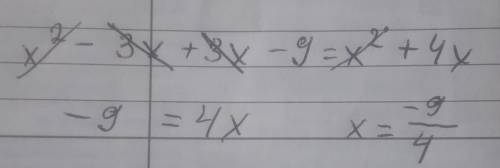 x² - 3x + 3x - 9 = x² + 4x
-9 = 4x x = -9/4